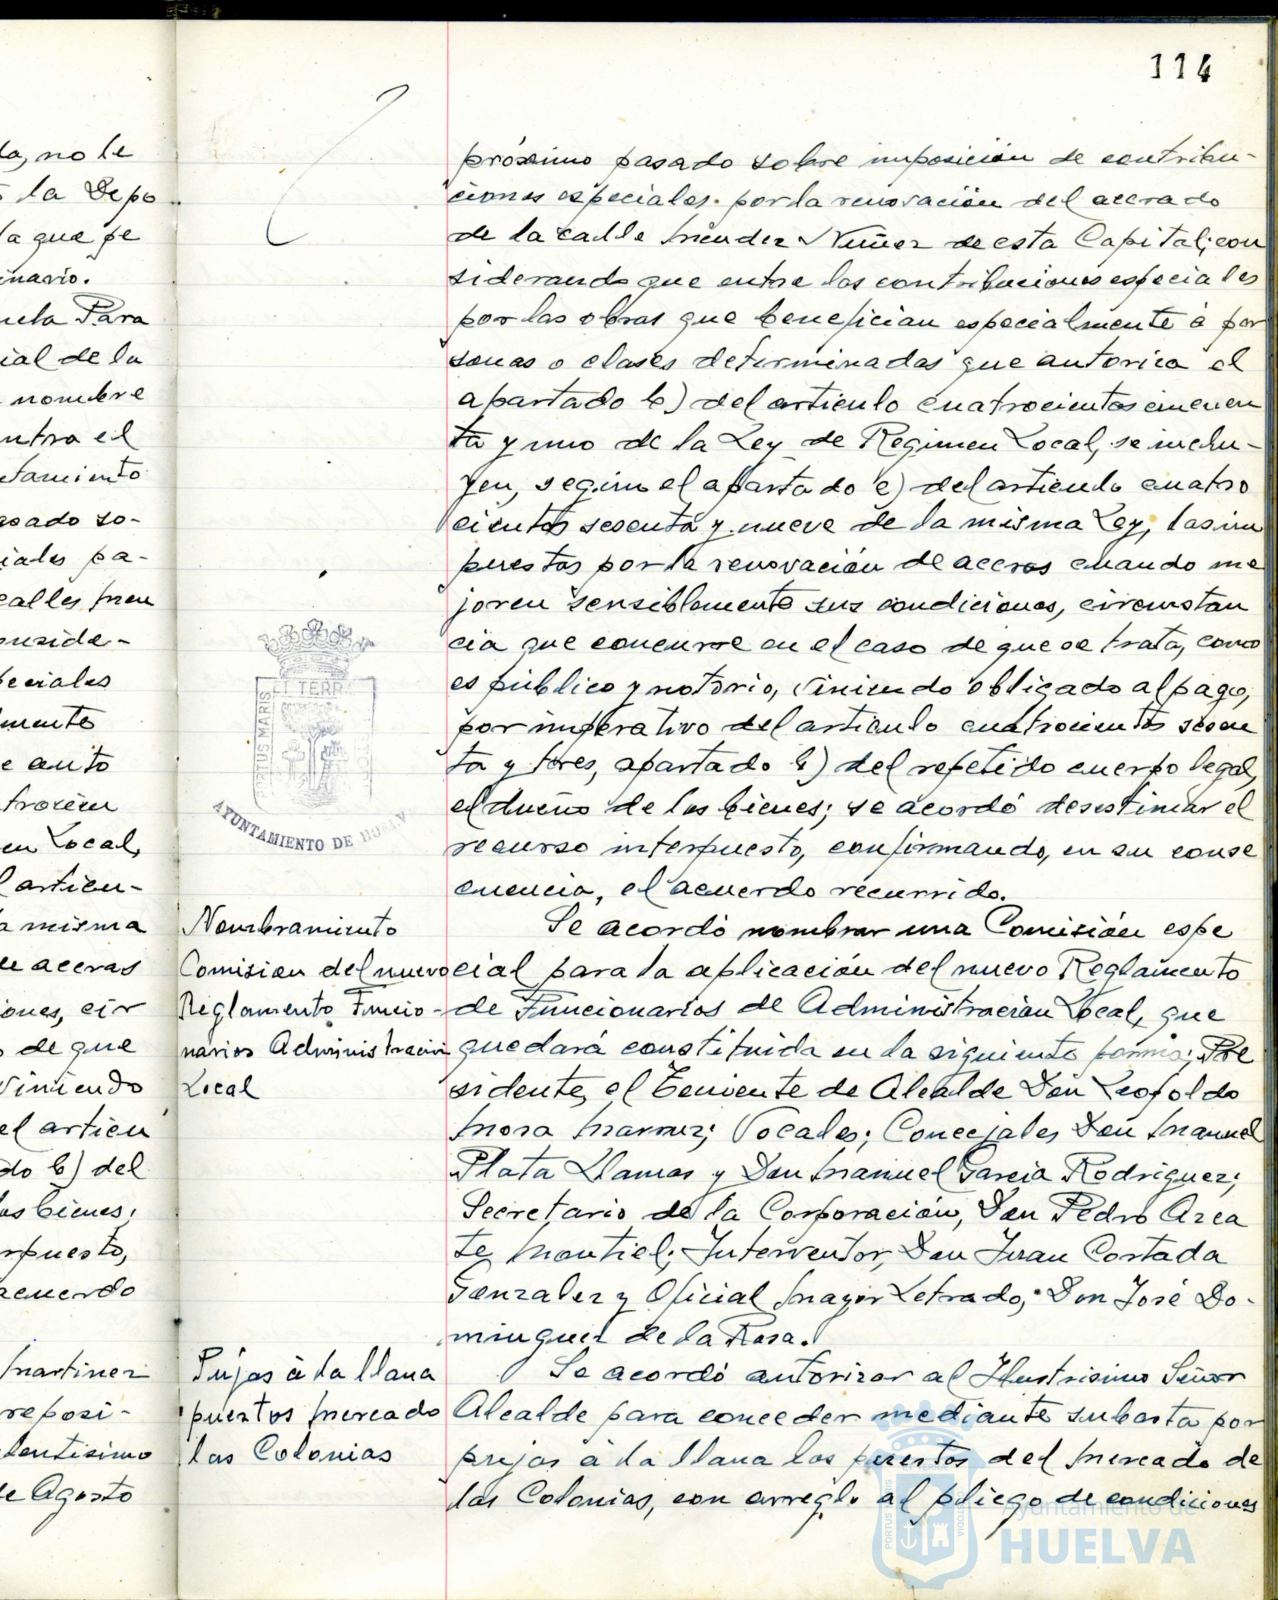 114
da, no le
s la Depo
la que pe
inario.
uela Para
ial de la
nombre
ntra el
ntamiento
asado so-
iales pa-
calles Men
onside-
peciales
lmente
e auto
trocien
en Local,
l articu-
a misma
de aceras
iones, cir
o de que
viniendo
el articu
do b) del
los bienes;
rpuesto,
acuerdo
Martinez
reposi-
lentisimo
de Agosto
ET TERRÆ
PORTUS MARIS
AYUNTAMIENTO DE HUELVA
próximo pasado sobre imposición de contribu-
ciones especiales por la renovación del acerado
de la calle Mendez Nuñez de esta Capital; con
siderando que entre las contribuciones especiales
por las obras que benefician especialmente á per
sonas o clases determinadas que autoriza el
apartado b) del articulo cuatrocientos cincuen
ta y uno de la Ley de Regimen Local, se inclu-
yen, segun el apartado e) del articulo cuatro
cientos sesenta y nueve de la misma Ley, las im
puestas por la renovación de aceras cuando me
joren sensiblemente sus condiciones, circunstan
cia que concurre en el caso de que se trata, como
es público y notorio, viniendo obligado al pago,
por imperativo del articulo cuatrocientos sesen
ta y tres, apartado b) del repetido cuerpo legal,
el dueño de los bienes; se acordó desestimar el
recurso interpuesto, confirmando, en su conse
cuencia, el acuerdo recurrido.
Nombramiento
Comision del nuevo
Reglamento Funcio-
narios Administración
Local
Se acordó nombrar una Comisión espe
cial para la aplicación del nuevo Reglamento
de Funcionarios de Administración Local, que
quedará constituida en la siguiente forma; Pre
sidente, el Teniente de Alcalde Don Leopoldo
Mora Vocales; Concejales Don Manuel
Plata Llamas y Don Manuel Garcia Rodriguez;
Secretario de la Corporación, Don Pedro Arca
te Montiel; Interventor, Don Juan Cortada
Gonzalez y Oficial Mayor Letrado, Don José Do-
minguez de la Rosa.
Pujas à la llana
puestos Mercado
las Colonias
Se acordó autorizar al Ilustrisimo Señor
Alcalde para conceder mediante subasta por
pujas à la llana los puestos del Mercado de
las Colonias, con arreglo al pliego de condiciones
Ayuntamiento de
HUELVA